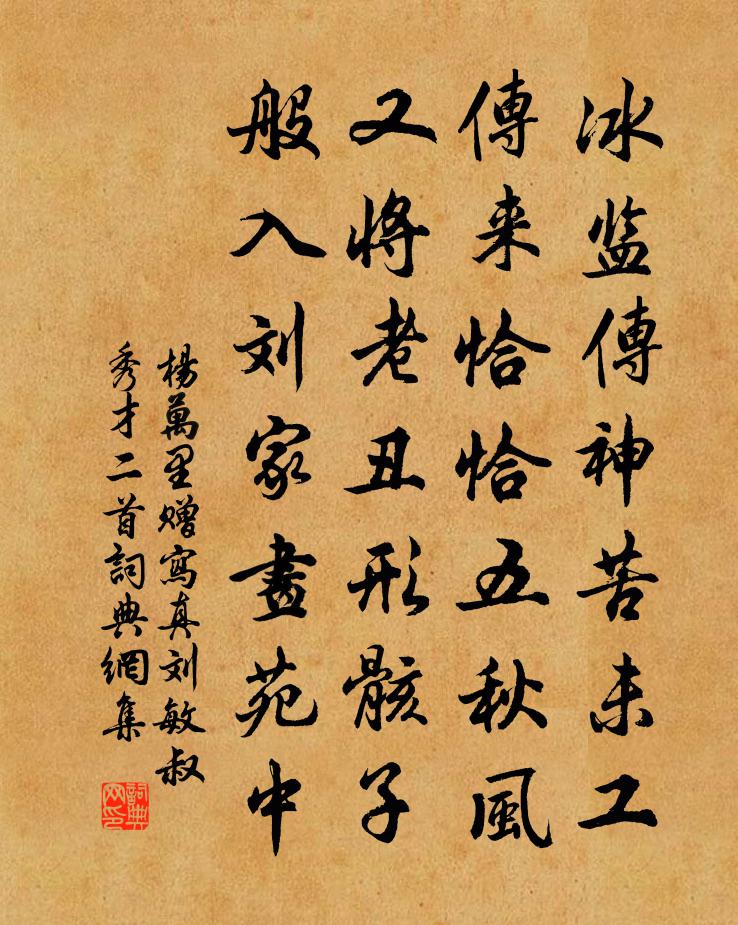 冰监傳神苦未工
傳来恰恰五秋風
又将老丑形骸子
般入刘家畫苑中
楊萬里赠寫真刘敏叔
秀才二首詞典網集
詞典网印